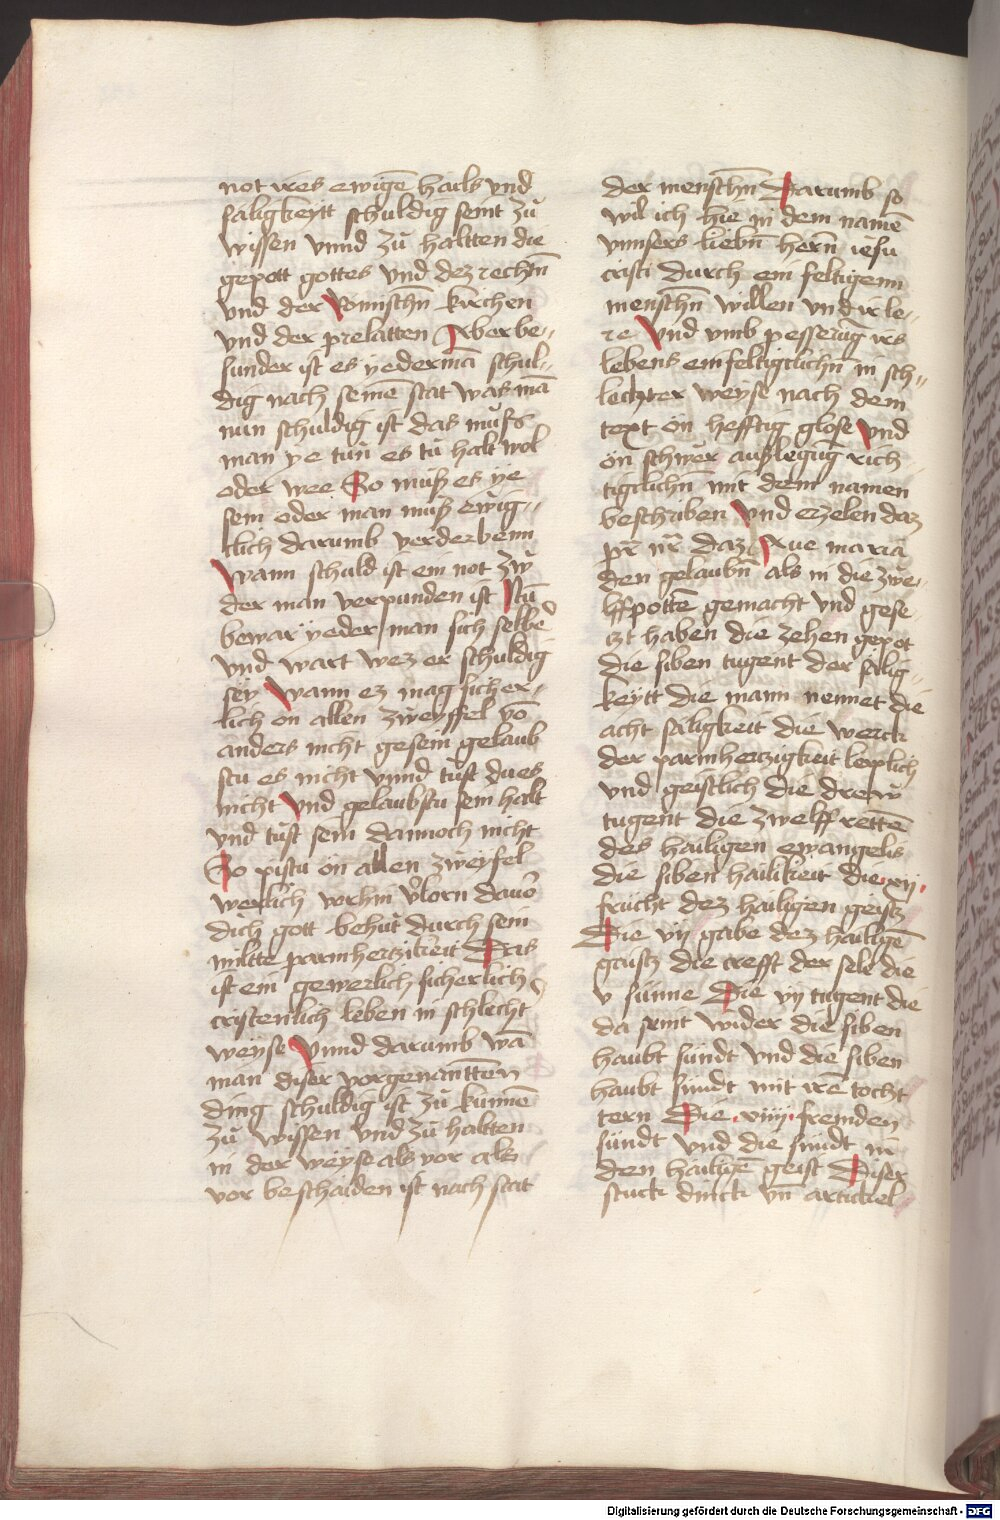 not ires ewigē hails vnd
säligkeytt schuldig seint zů
wissen vnnd zů haltten die
gepott gottes vnd dez rechtn̄
vnd der Romschn̄ kirchen
vnd der prelatten Aber be-
sunder ist es yedermā schul-
dig nach seinē stat was mā
nun schuldig ist das můß
man ye tůn es tů halt wol
oder wee So můß es ye
sein oder man můß ewig-
klich darumb verderbenn
Wann schuld ist ein not zw
der man verpunden ist Nŭ
bewar yeder man sich selber
vnd wart wez er schuldig
sey Wann ez mag sicher-
lich on allen zweyffel vō
anders nicht gesein gelaub
stu es nicht vnnd tůst du es
nicht Vnd gelaubstu sein halt
vnd tůst sein dannoch nicht
So pistu ön allen zweyfel
werlich vorhin v̓lorn dauō
dich gott behůt durch sein
miltte parmhertzikeit Das
ist ein gewerlich sicherlich
cristenlich leben in schlecht
weyse Vnnd darumb wā
man diser vorgenantten
ding schuldig ist zů künnē
zů wissen vnd zů haltten
in der weyse als vor als
vor beschaiden ist nach stat
der menschn̄ Darumb so
wil ich hie in dem namē
vnnsers liebn̄ hern̄ iesu
cristi durch ein feltigenn
menschn̄ willen vnd ir le-
re Vnd vmb pesserūg irs
lebens einfeltigclichn̄ in sch-
lechter weyse nach dem
text ön hefftig glose Vnd
ön schwer außlegūg rich-
tigclichn̄ mit dem namen
beschriben Vnd erzelen daz
pr̄ nr̄ daz Aue maria
den gelaubn̄ als in die zwe-
lffpottē gemacht vnd gese-
tzt haben die zehen gepot
die siben tugent der sälig-
keytt die mann nennet die
acht säligkeit die werck
der parmhertzigkeit leiplich
vnd geistlich die drew
tugent die zwelff rettē
des hailigen ewangelis
die siben hailikeit die xij.
frücht dez hailigen geistz
Die vij gabe dez hailigē
geistz die crefft der sele die
v sünne Die vij tugent die
da seint wider die siben
haubt sündt vnd die siben
haubt sündt mit irē tocht
tern Die .viiij. fremden
sündt vnd die sündt in
den hailigē geist Diser
stuck dinck vn̄ artickel
Digitalisierung gefördert durch die Deutsche Forschungsgemeinschaft - DFG